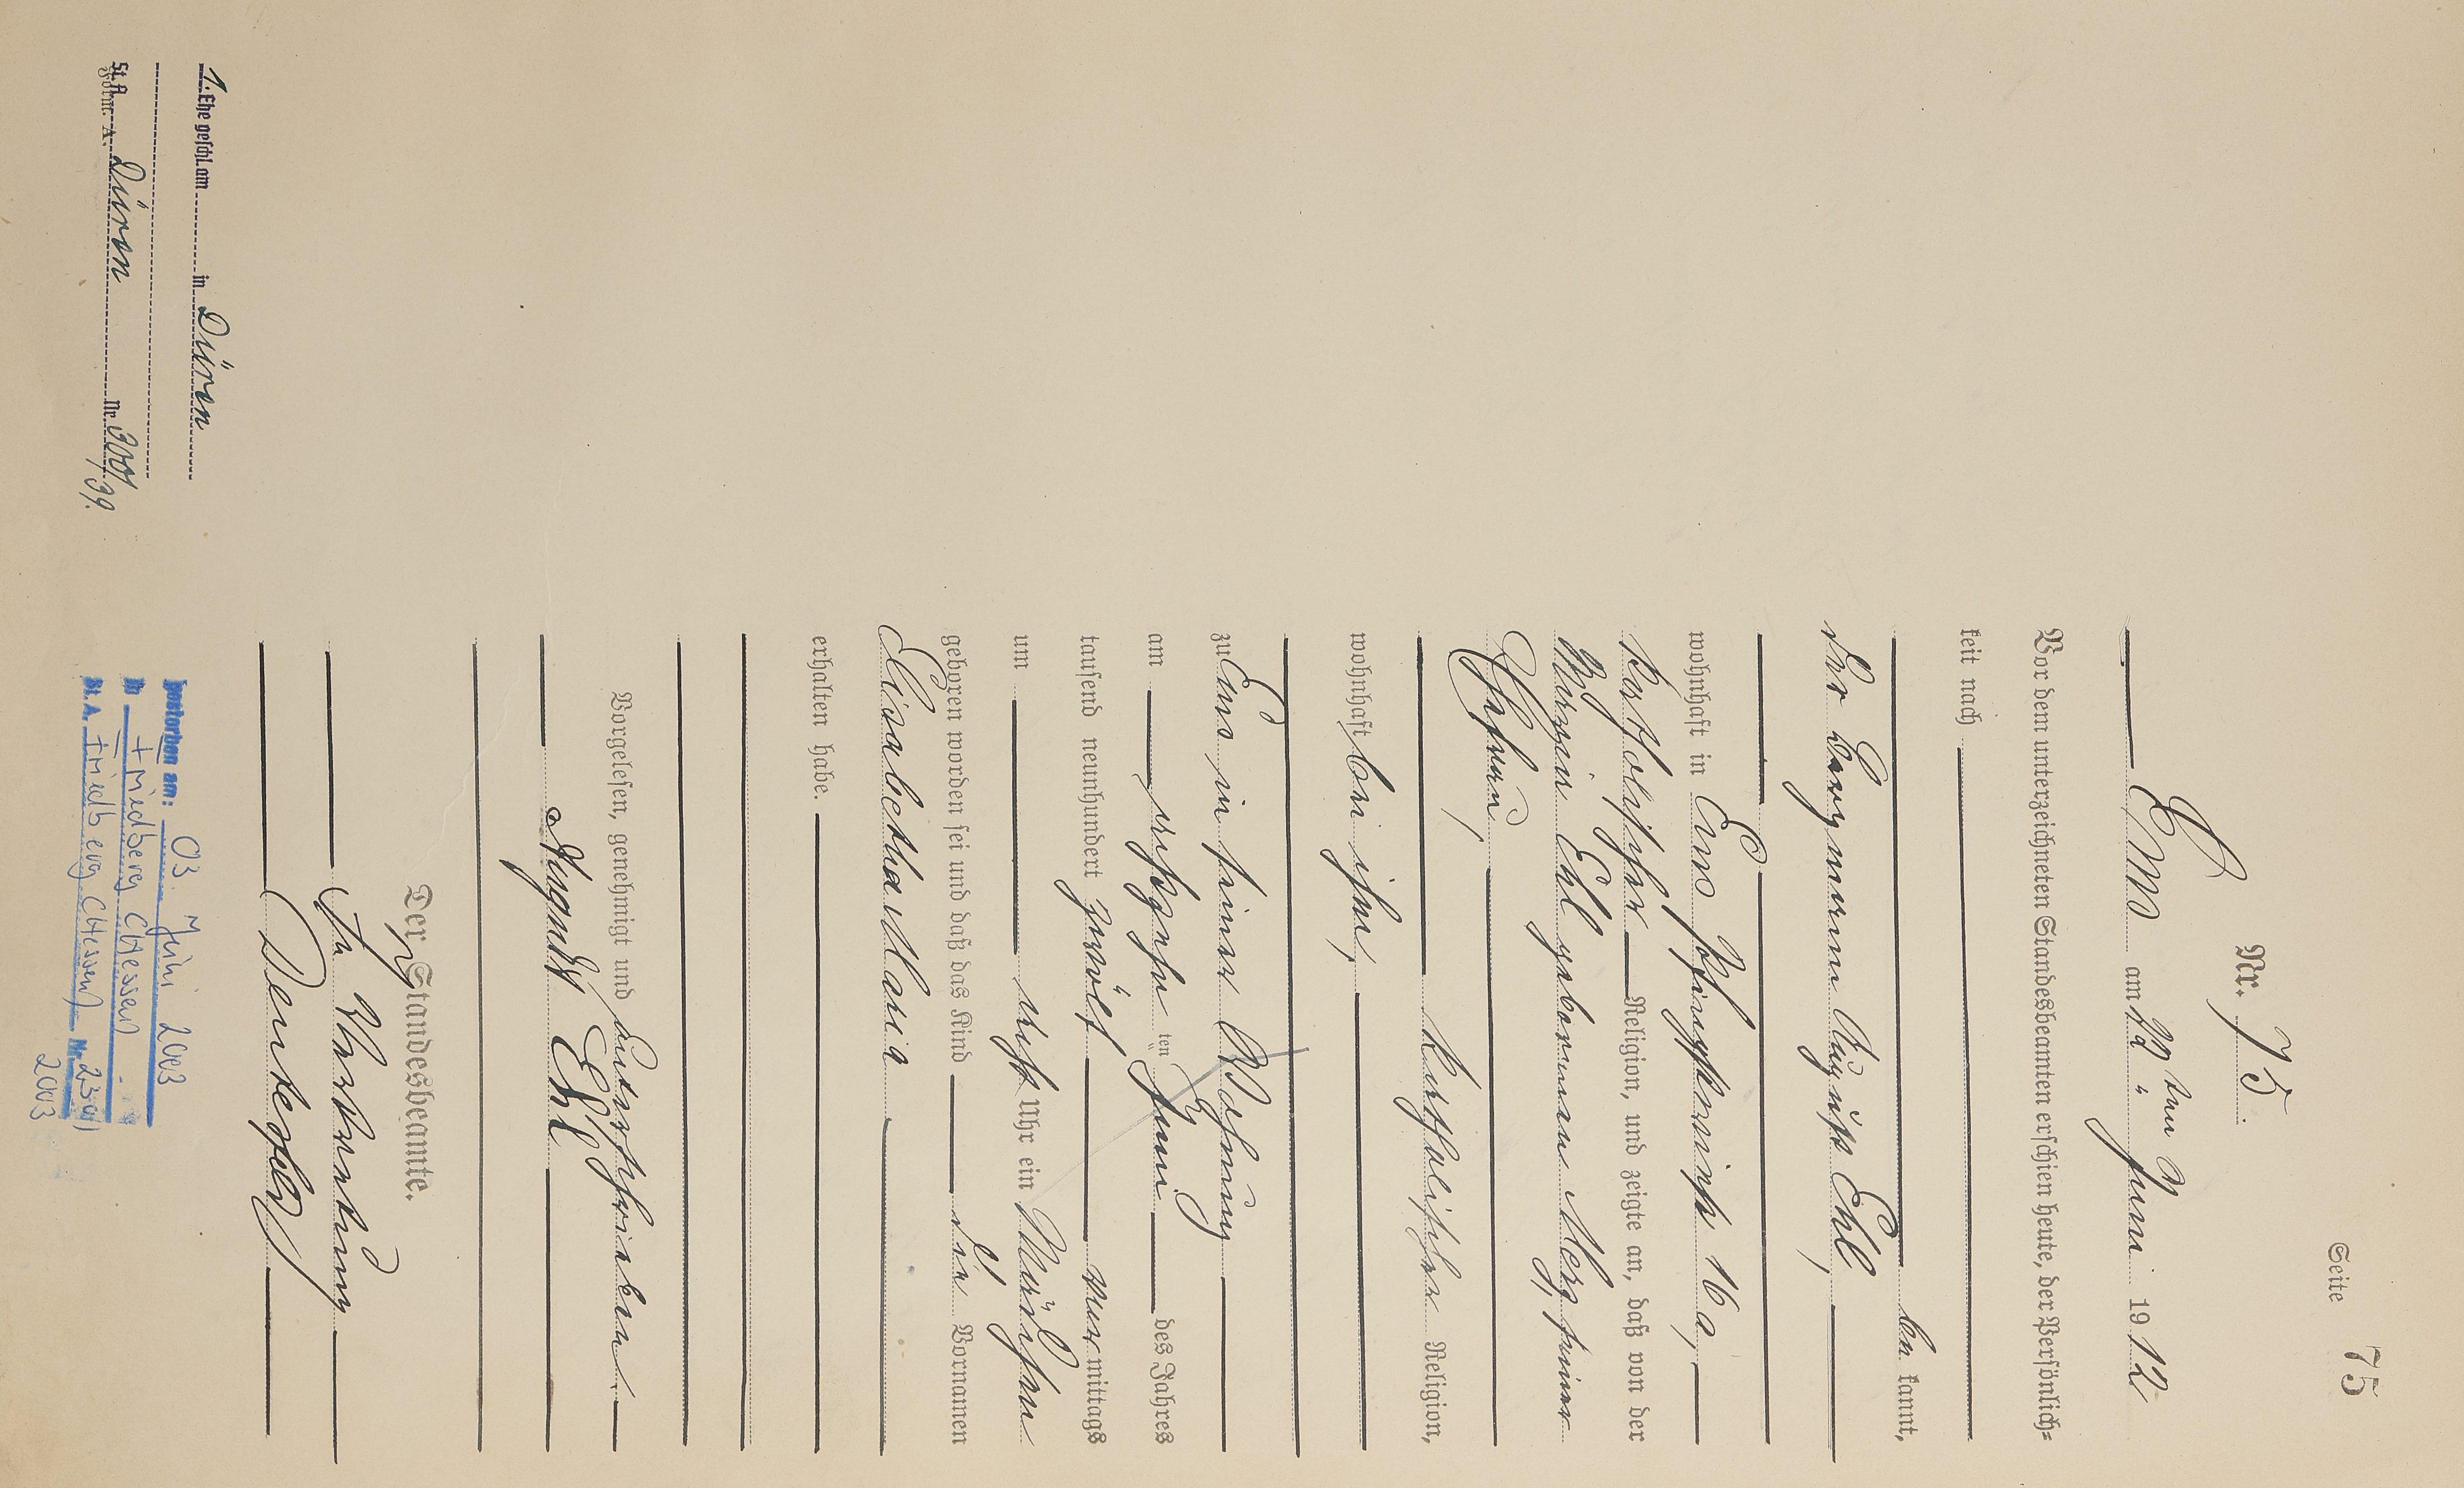 Seite 75
Nr. 75.
Ems am 22 ten Juni 1912
Vor dem unterzeichneten Standesbeamten erschien heute, der Persönlich-
keit nach
be kannt,
der Bergmann August Ehl,
wohnhaft in Ems Pfingstweise 16 a,
katholischer Religion, und zeigte an, daß von der
Maria Ehl geborenen Merz, seiner
Ehefrau,
katholischer Religion,
wohnhaft bei ihm,
zu Ems in seiner Wohnung
am achtzehn ten Juni des Jahres
tausend neunhundert zwölf vormittags
um acht Uhr ein Mädchen
geboren worden sei und daß das Kind die Vornamen
Elisabetha Maria
erhalten habe.
Vorgelesen, genehmigt und unterschrieben
August Ehl
Der Standesbeamte.
In Vertretung
1. Ehe geschl. am in Düren
St. A. Düren Nr. /39.
Form. A.
gestorben am: 03. Juni 2003
in Friedberg (Hessen)
St. A. Friedberg (Hessen) Nr.
2003